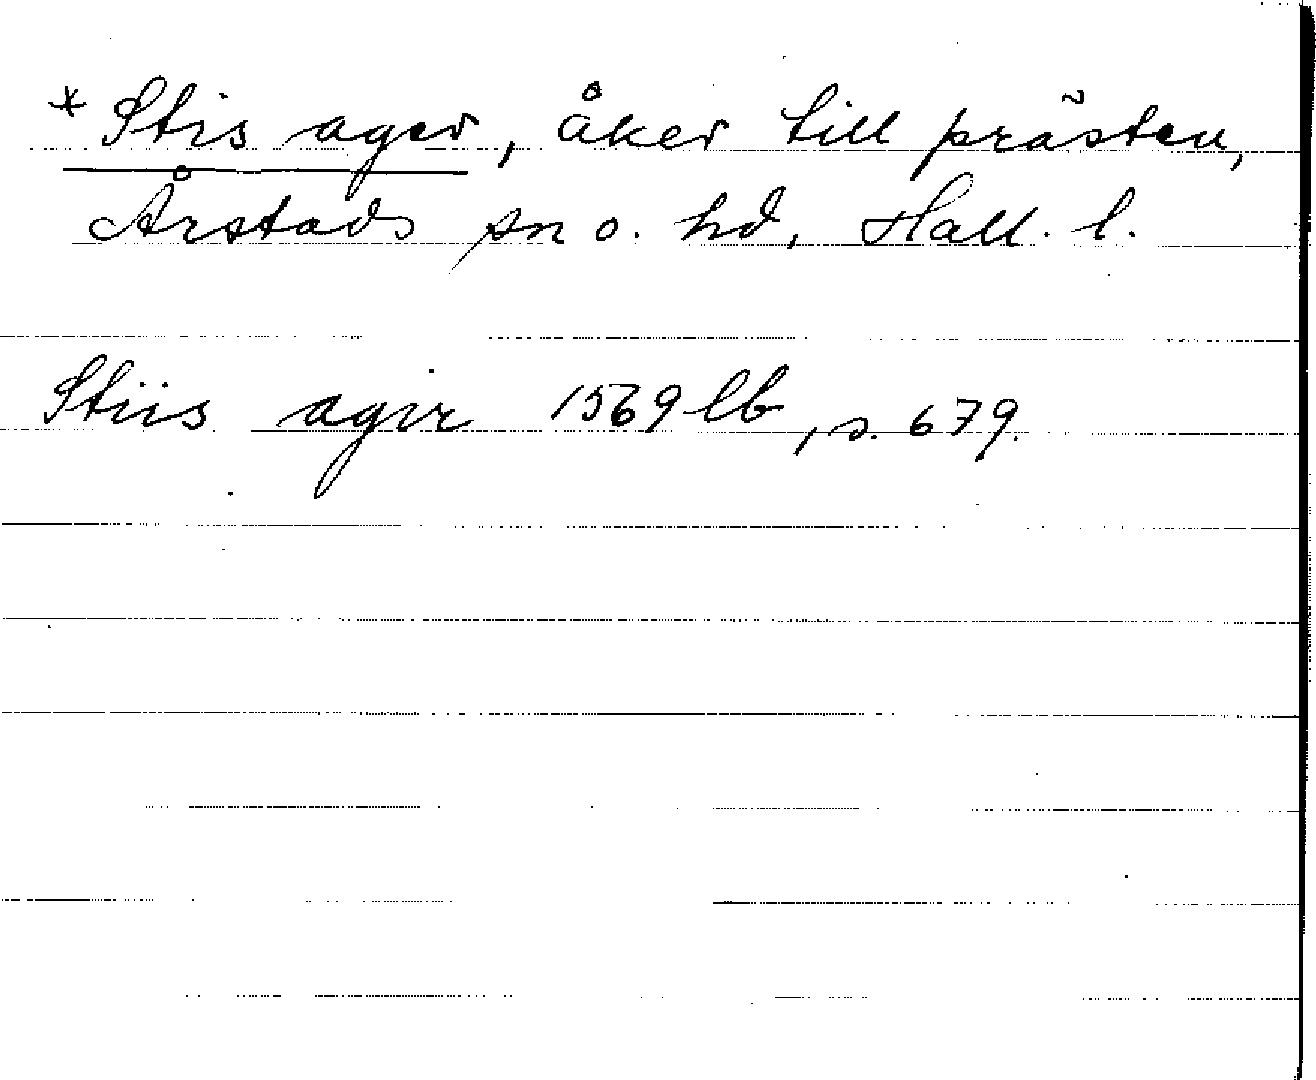 * Stis ager, åker till prästen,
Årstads sn o. hd, Hall. l.
Stiis agir 1569 lb, s. 679.